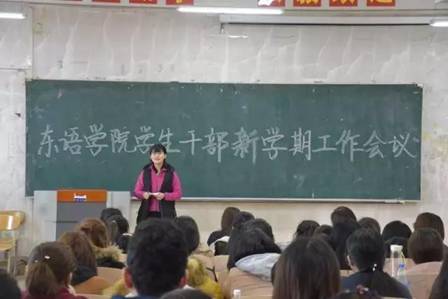 东语学院学生干部新学期工作会议